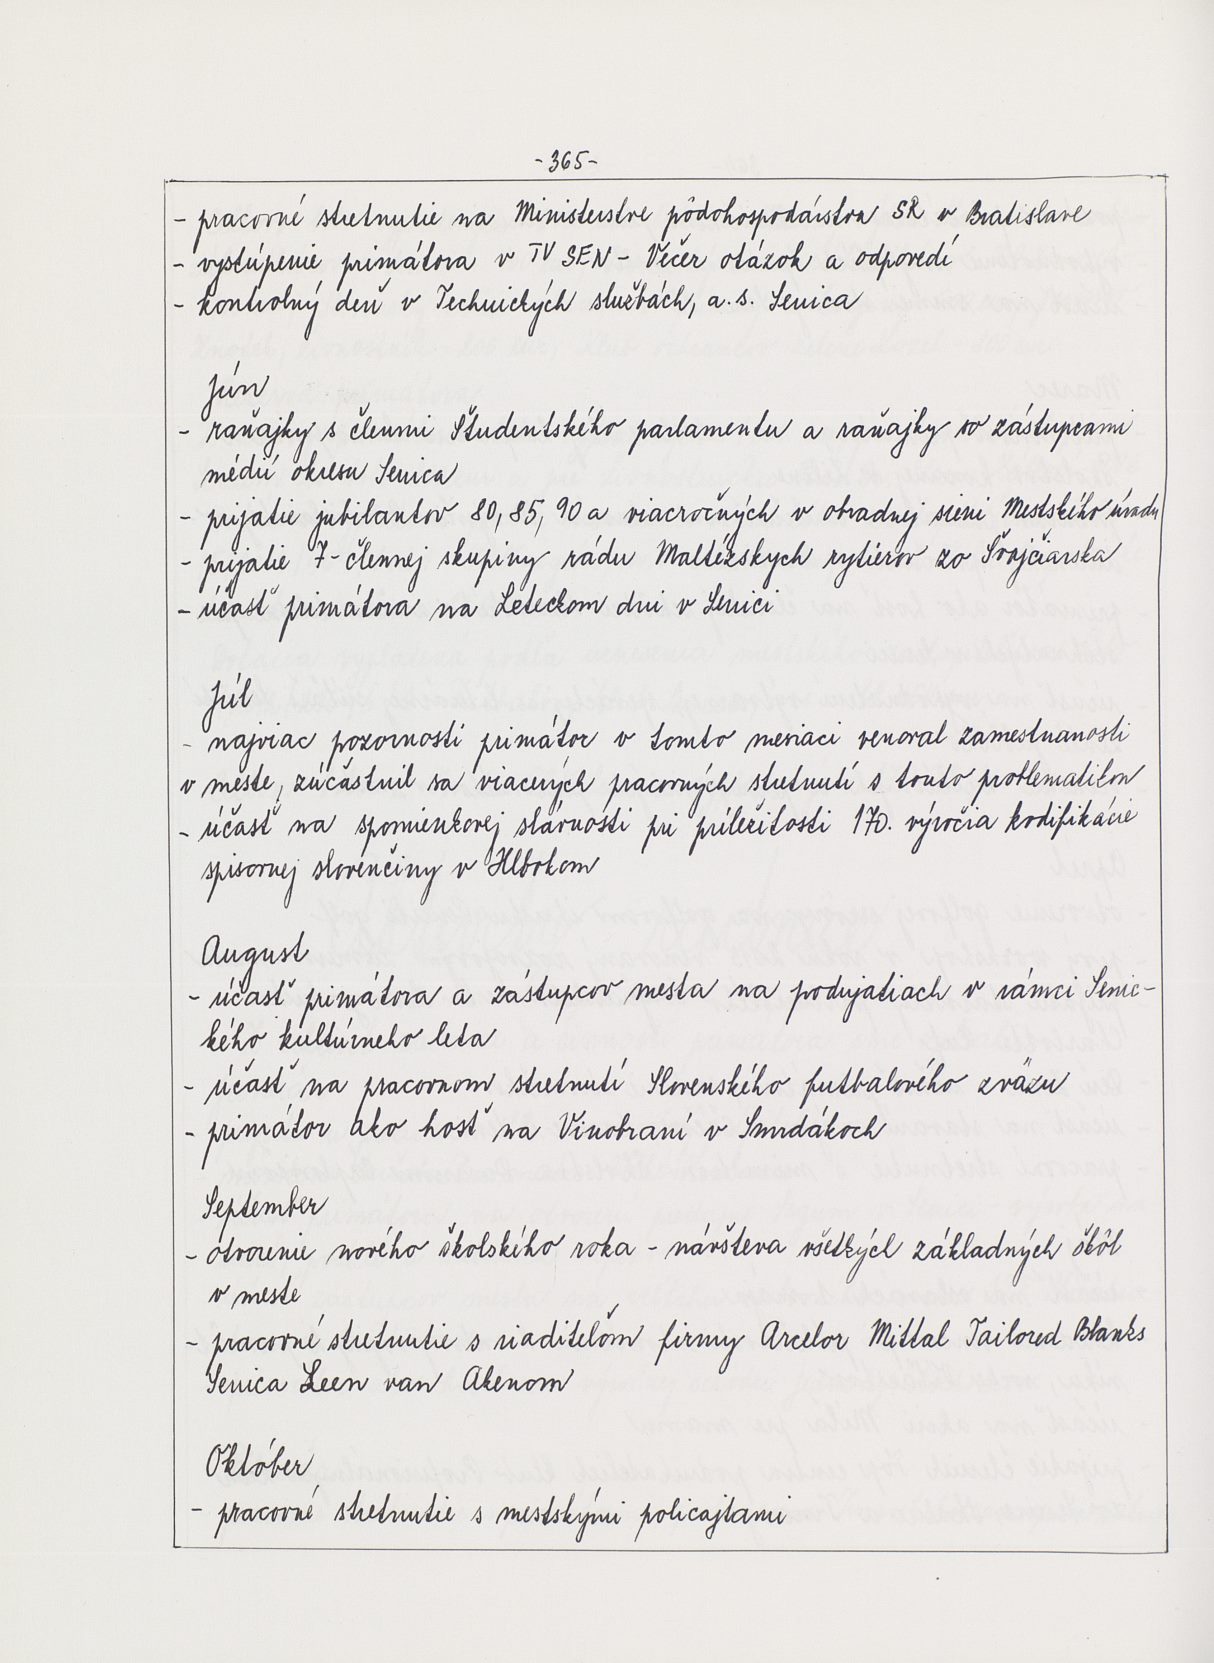 -365-
- pracovné stretnutie na Ministerstve pôdohospodárstva SR v Bratislave
- vystúpenie primátora v TV SEN - Večer otázok a odpovedí
- kontrolný deň v Technických službách, a.s. Senica
Jún
- raňajky s členmi Študentského parlamentu a raňajky so zástupcami
médií okresu Senica
- prijatie jubilantov 80, 85, 90 a viacročných v obradnej sieni Mestského úradu
- prijatie 7-člennej skupiny rádu Maltézskych rytierov zo Švajčiarska
- účasť primátora na Leteckom dni v Senici
Júl
- najviac pozornosti primátor v tomto mesiaci venoval zamestnanosti
v meste, zúčastnil sa viacerých pracovných stretnutí s touto problematikou
- účasť na spomienkovej slávnosti pri príležitosti 170. výročia kodifikácie
spisovnej slovenčiny v Hlbokom
August
- účasť primátora a zástupcov mesta na podujatiach v rámci Senic-
kého kultúrneho leta
- účasť na pracovnom stretnutí Slovenského futbalového zväzu
- primátor ako hosť na Vinobraní v Smrdákoch
September
- otvorenie nového školského roka - návšteva všetkých základných škôl
v meste
- pracovné stretnutie s riaditeľom firmy Arcelor Mittal Tailored Blanks
Senica Leen van Akenom
Október
- pracovné stretnutie s mestskými policajtami